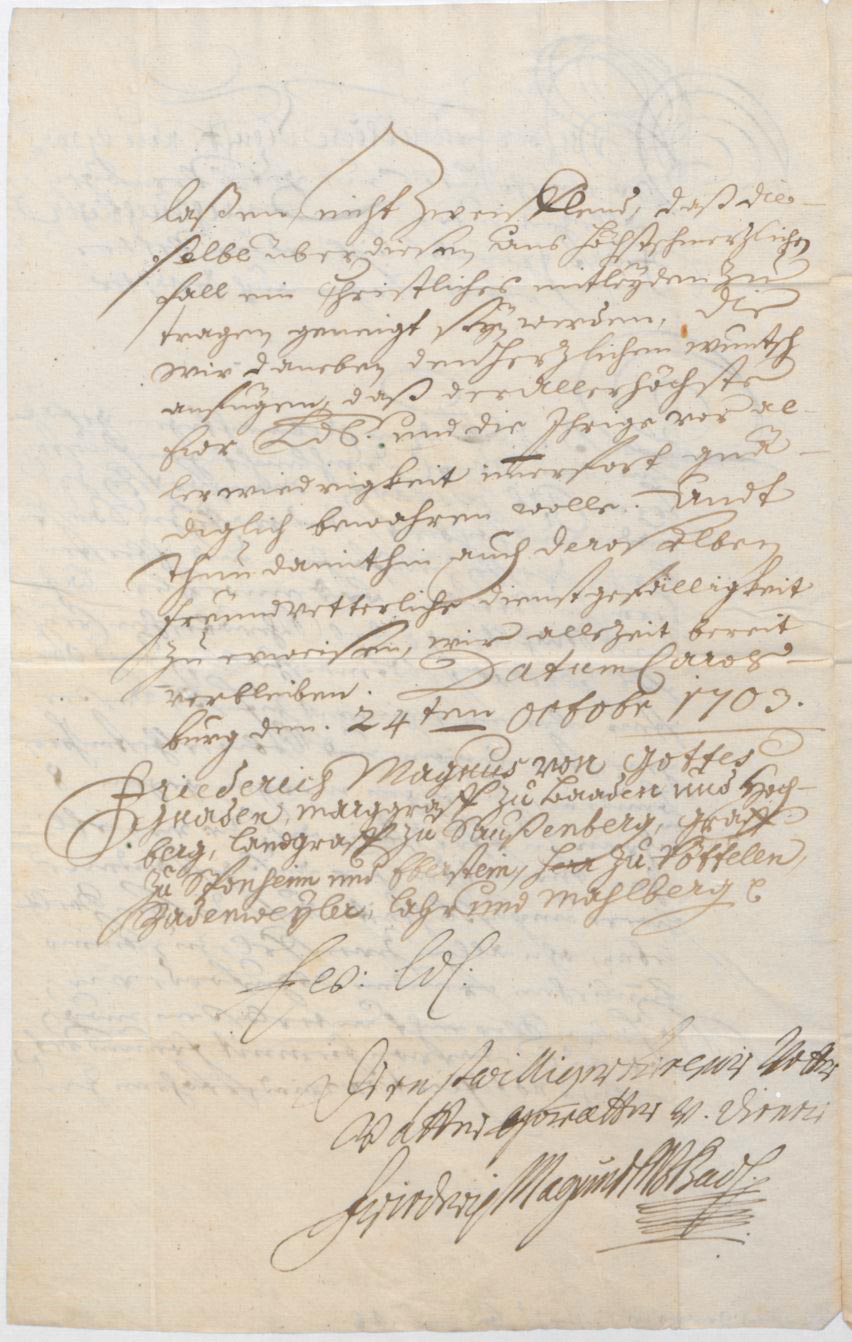 laßen, nicht Zweifflend, daß die-
selbe über diesen Uns höchstschmerzlichen
fall ein Christliches mitleyden Zu
tragen geneigt seyn werden, Die
wir daneben den herzlichen wuntsch
anfügen, daß der Allerhöchste
hier Ld. und die Ihrige vor al-
ler wiedrigkeit im̅erfort gnä-
diglich bewahren wolle. Undt
Thun damithin auch deroselben
freündvetterliche dienstgefälligkeit
zu erweisen, wir allezeit bereit
verbleiben. Datum Carols-
burg den. 24ten Octobr 1703.
Friederich Magnus von Gottes
gnaden, Marggraff zu Baaden und Hoch-
berg, Landgraff zu Saußenberg, Graff
zu Sponheim und Eberstein, Herr zu Röttelen,
Badenweyler, Lahr und Mahlberg
Ew: Ld:
Dienstwilliger Vetter
Gevatter v. Diener
Friederich Magnus MvBad